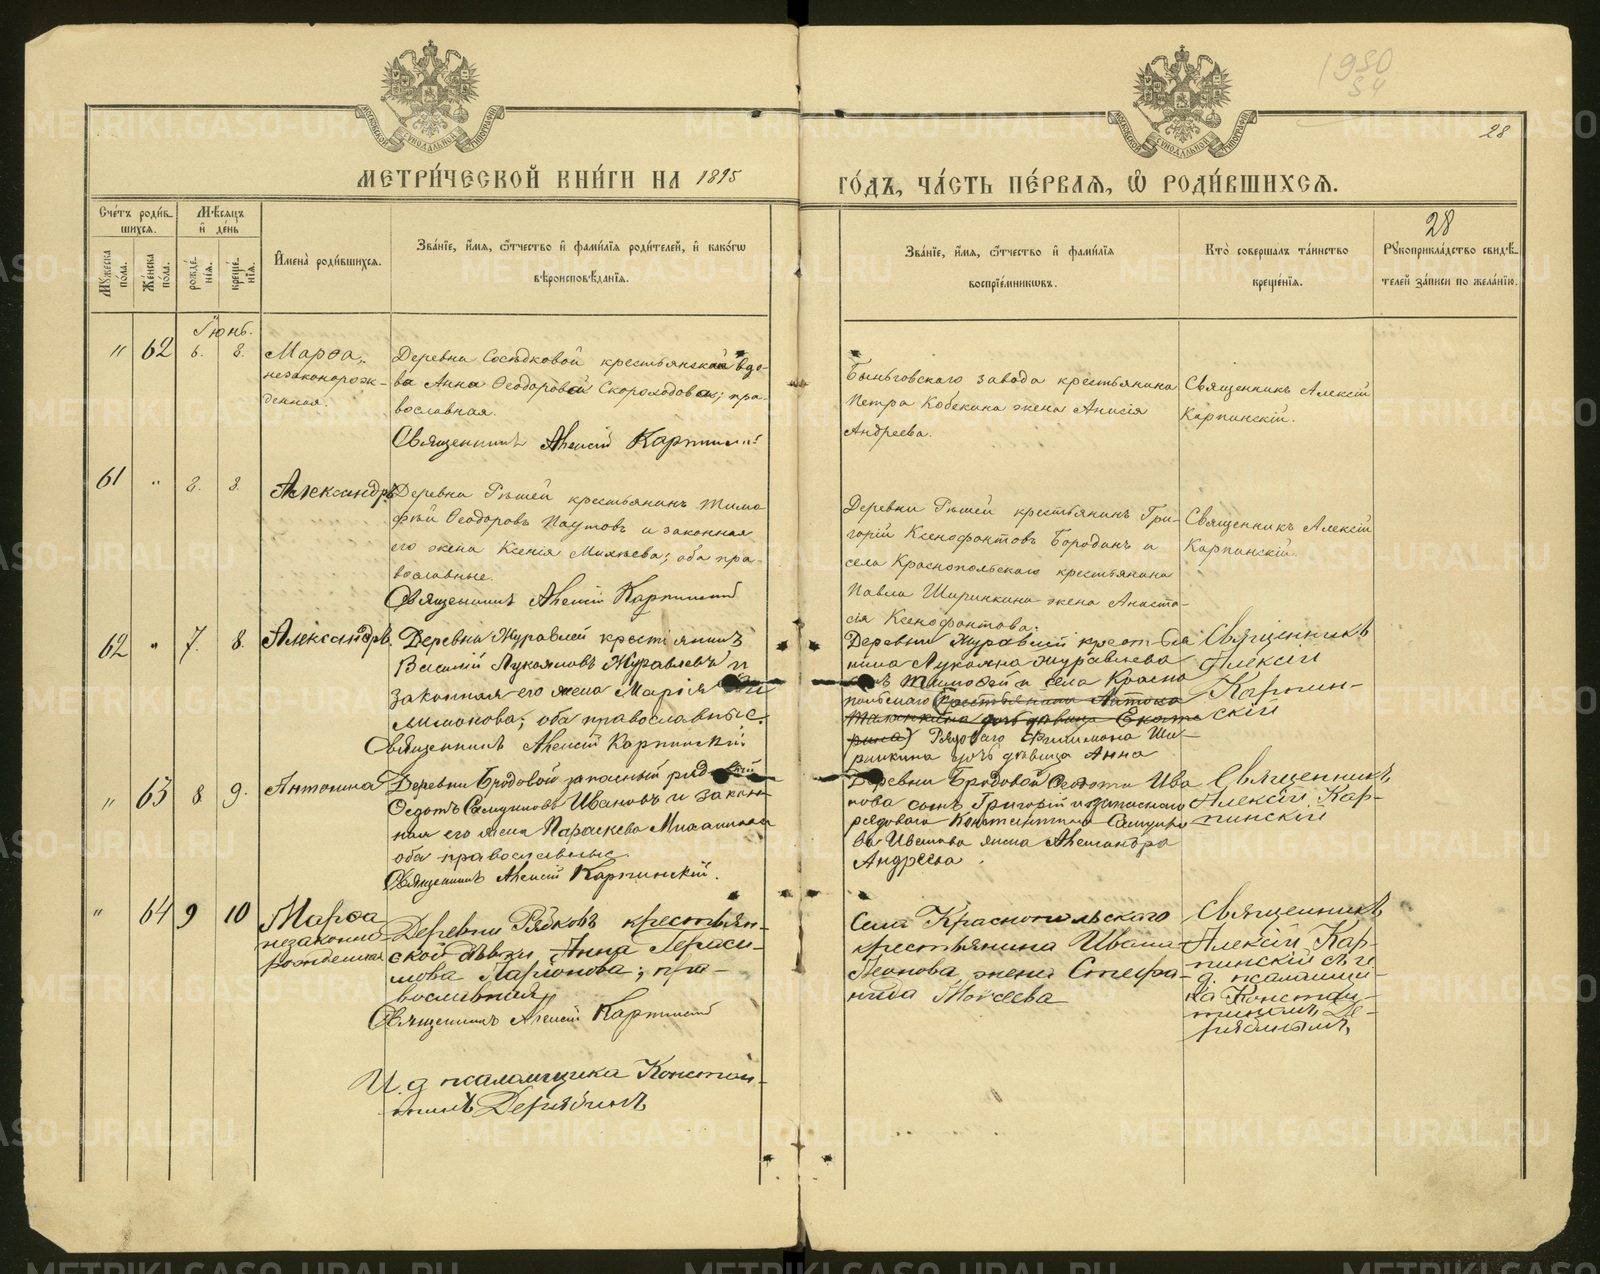 1930
34
28
МОСКОВСКОЙ СѴНОДАЛЬНОЙ ТИПОГРАФІИ
МОСКОВСКОЙ СѴНОДАЛЬНОЙ ТИПОГРАФІИ
МЕТРИ́ЧЕСКОЙ КНИ́ГИ НА 1895
ГО́ДЪ, ЧА́СТЬ ПЕ́РВАЯ, Ѡ҆ РОДИ́ВШИХСЯ.
Сче́тъ роди́в-
шихся.
Мѣ́сяцъ
и҆ де́нь
Му́жеска по́ла.
Же́нска по́ла.
рожде́-
нїя.
креще́-
нїя.
И҆мена̀ роди́вшихся.
Зва́нїе, и҆́мя, ѻ҆́тчество и҆ фами́лїя роди́телей, и҆ како́гѡ
вѣроисповѣ́данїя.
Зва́нїе, и҆́мя, ѻ҆́тчество и҆ фами́лїя
воспрїе́мникѡвъ.
Кто̀ соверша́лъ та́инство
креще́нїя.
28
Рꙋкоприкла́дство свидѣ́-
телей за́писи по жела́нїю.
Іюнь.
" 62 6. 8.
Марѳа,
незаконорож-
денная.
Деревни Сосѣдковой крестьянская вдо-
ва Анна Ѳеодорова Скороходова; пра-
вославная.
Священникъ Алексій Карпинскій
Быньговскаго завода крестьянина
Петра Кобекина жена Анисія
Андреева.
Священникъ Алексій
Карпинскій.
61 " 2. 8.
Александръ
Деревни Рѣшей крестьянинъ Тимо-
фей Ѳеодоровъ Паутовъ и законная
его жена Ксенія Михеева; оба пра-
вославные.
Священникъ Алексій Карпинскій
Деревни Рѣшей крестьянинъ Гри-
горій Ксенофонтовъ Бородинъ и
села Краснопольскаго крестьянина
Павла Ширинкина жена Анаста-
сія Ксенофонтова.
Священникъ Алексій
Карпинскій.
62 " 7. 8.
Александръ.
Деревни Журавлей крестьянинъ
Василій Лукояновъ Журавлевъ и
законная его жена Марія Фи
лимонова; оба православные.
Священникъ Алексій Карпинскій
Деревни Журавлей крестья
нина Лукояна Журавлева
сынъ Тимофей и села Красно
польскаго (крестьянина Антона
дочь дѣвица Екате
рина) Рядоваго Филимона Ши-
ринкина дочь дѣвица Анна
Священникъ
Алексій
Карпин-
скій
" 63 8 9.
Антонина
Деревни Бродовой запасный рядовой
Ѳедотъ Самуиловъ Ивановъ и закон-
ная его жена Параскева
оба православные.
Священникъ Алексій Карпинскій.
Деревни Бродовой Ѳедота Ива
нова сынъ Григорій и запаснаго
рядоваго Константина Самуило
ва Иванова жена Александра
Андреева.
Священникъ
Алексій Кар-
пинскій
" 64 9 10
Марѳа
незаконно
рожденная
Деревни Ряковъ крестьян-
ской дѣвки Анна Гераси-
мова Ларіонова; пра-
вославная
Священникъ Алексій Карпинскій
Села Краснопольскаго
крестьянина Ивана
Леонова жена Стефа-
нида Моисеева
Священникъ
Алексій Кар-
пинскій съ и.
д. псаломщи-
ка Констан-
тиномъ Де-
рябинымъ.
И. д псаломщика Констан-
тинъ Дерябинъ
METRIKI.GASO-URAL.RU